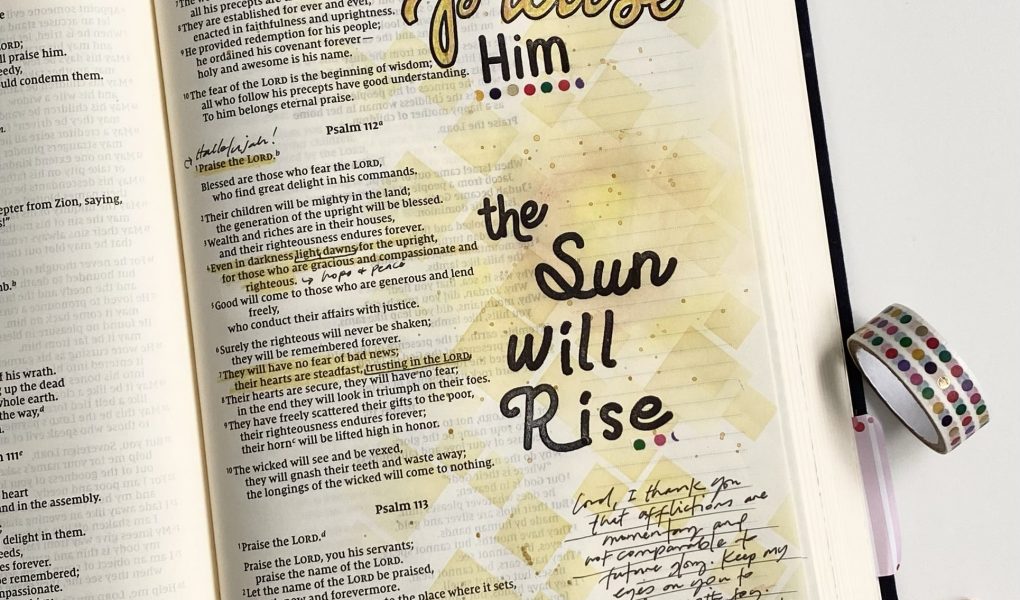 all his precepts are
⁸They are established for ever and ever,
enacted in faithfulness and uprightness.
⁹He provided redemption for his people;
he ordained his covenant forever—
holy and awesome is his name.
¹⁰The fear of the LORD is the beginning of wisdom;
all who follow his precepts have good understanding.
To him belongs eternal praise.
Psalm 112ᵃ
Hallelujah!
¹Praise the LORD.ᵇ
Blessed are those who fear the LORD,
who find great delight in his commands.
²Their children will be mighty in the land;
the generation of the upright will be blessed.
³Wealth and riches are in their houses,
and their righteousness endures forever.
⁴Even in darkness light dawns for the upright,
for those who are gracious and compassionate and
righteous. → hope & peace
⁵Good will come to those who are generous and lend
freely,
who conduct their affairs with justice.
⁶Surely the righteous will never be shaken;
they will be remembered forever.
⁷They will have no fear of bad news;
their hearts are steadfast, trusting in the LORD.
⁸Their hearts are secure, they will have no fear;
in the end they will look in triumph on their foes.
⁹They have freely scattered their gifts to the poor,
their righteousness endures forever;
their hornᶜ will be lifted high in honor.
¹⁰The wicked will see and be vexed,
they will gnash their teeth and waste away;
the longings of the wicked will come to nothing.
Psalm 113
¹Praise the LORD.ᵈ
Praise the LORD, you his servants;
praise the name of the LORD.
²Let the name of the LORD be praised,
now and forevermore.
to the place where it sets,
Praise
Him
the
Sun
will
Rise
Lord, I thank you
that afflictions are
momentary and
not comparable to
future glory. Keep my
eyes on you to
LORD;
ll praise him.
needy,
ould condemn them.
epter from Zion, saying,
s!"
mb.ᵇ
f his wrath.
g up the dead
whole earth.
the way,ᵈ
111ᵉ
heart
and in the assembly.
delight in them.
eeds,
es forever.
e remembered;
mpassionate.